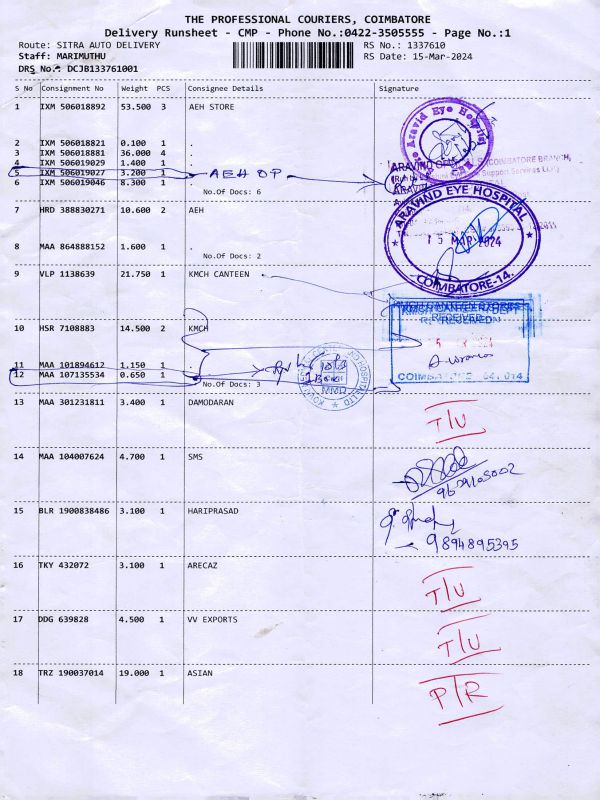 THE PROFESSIONAL COURIERS, COIMBATORE
Delivery Runsheet - CMP - Phone No.:0422-3505555 - Page No.:1
Route: SITRA AUTO DELIVERY
RS No.: 1337610
Staff: MARIMUTHU
RS Date: 15-Mar-2024
DRS No.: DCJB133761001
S No Consignment No Weight PCS Consignee Details Signature
1 IXM 506018892 53.500 3 AEH STORE
2 IXM 506018821 0.100 1 .
3 IXM 506018881 36.000 4 .
4 IXM 506019029 1.400 1 .
5 IXM 506019027 3.200 1 . AEH OP
6 IXM 506019046 8.300 1 .
No.Of Docs: 6
Aravind Eye Hospital
COIMBATORE BRANCH,
ARAVIND EYE HOSPITAL
15 MAR 2024
COIMBATORE-14.
7 HRD 388830271 10.600 2 AEH
8 MAA 864888152 1.600 1 .
No.Of Docs: 2
9 VLP 1138639 21.750 1 KMCH CANTEEN
10 HSR 7108883 14.500 2 KMCH
RECEIVED
COIMBATORE 641 014
11 MAA 101894612 1.150 1 .
12 MAA 107135534 0.650 1 .
No.Of Docs: 3
MMD
13 MAA 301231811 3.400 1 DAMODARAN
T/U
14 MAA 104007624 4.700 1 SMS
15 BLR 1900838486 3.100 1 HARIPRASAD
9894895395
16 TKY 432072 3.100 1 ARECAZ
T/U
17 DDG 639828 4.500 1 VV EXPORTS
T/U
18 TRZ 190037014 19.000 1 ASIAN
PTR